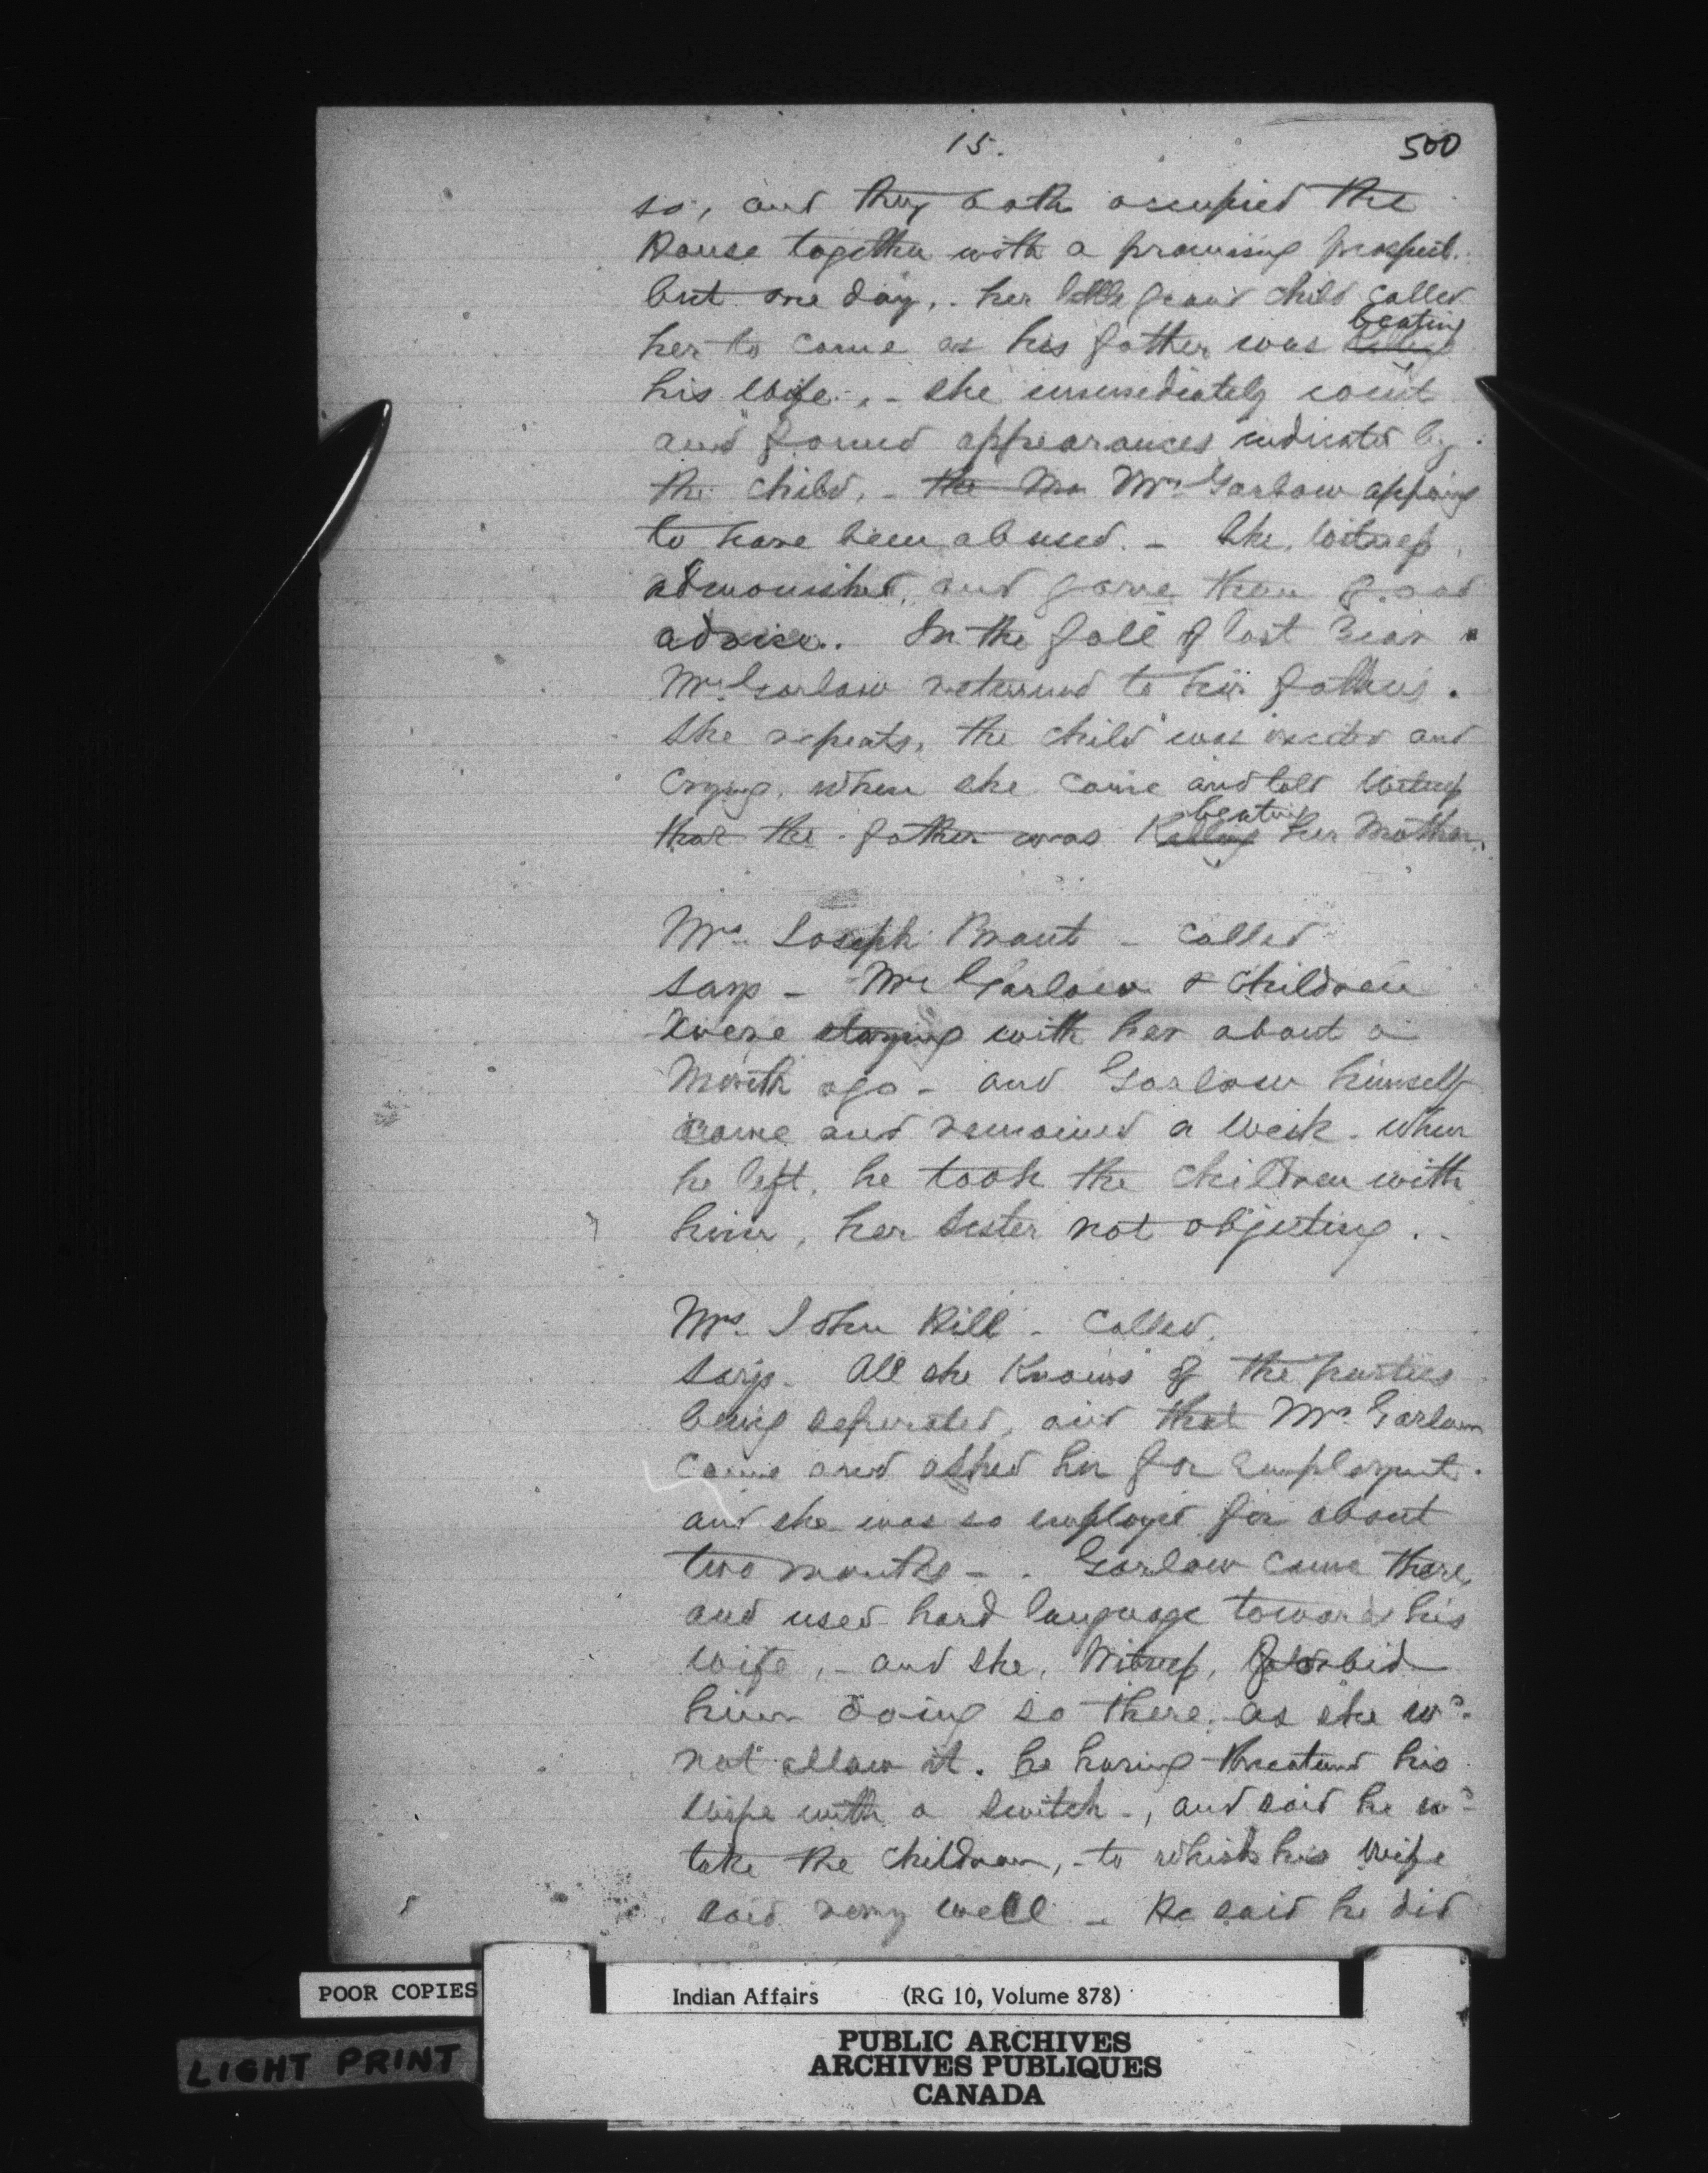 15.
500
so, and they both occupied the
House together with a promising prospect.
but one day, - her little grand child called
her to come as his father was beating
his wife -, - she immediately went
and found appearances indicated by
the child, - Mrs Garlow appearing
to have been abused. - She, Witness,
admonished, and gave them good
advise. In the fall of last Year
Mrs Garlow returned to her father's.
She repeats, the child was excited and
Crying, when she came and told Witness
that the father was beating her Mother.
Mrs Joseph Brant - called
says - Mrs Garlow & children
Were staying with her about a
Month ago - and Garlow himself
came and remained a Week. When
he left, he took the children with
him, her Sister not objecting.
Mrs. John Hill - Called.
Says - All she Knows of the parties
being seperated, and that Mrs Garlow
came and asked her for employment.
and she was so employed for about
two months - . Garlow came there,
and used hard language towards his
wife, - and she, Witness, forbid
him doing so there, as she wd
not allow it. he having threatened his
Wife with a Switch -, and said he wd
take the children, - to which his Wife
said very well - He said he did
POOR COPIES
LIGHT PRINT
Indian Affairs (RG 10, Volume 878)
PUBLIC ARCHIVES
ARCHIVES PUBLIQUES
CANADA